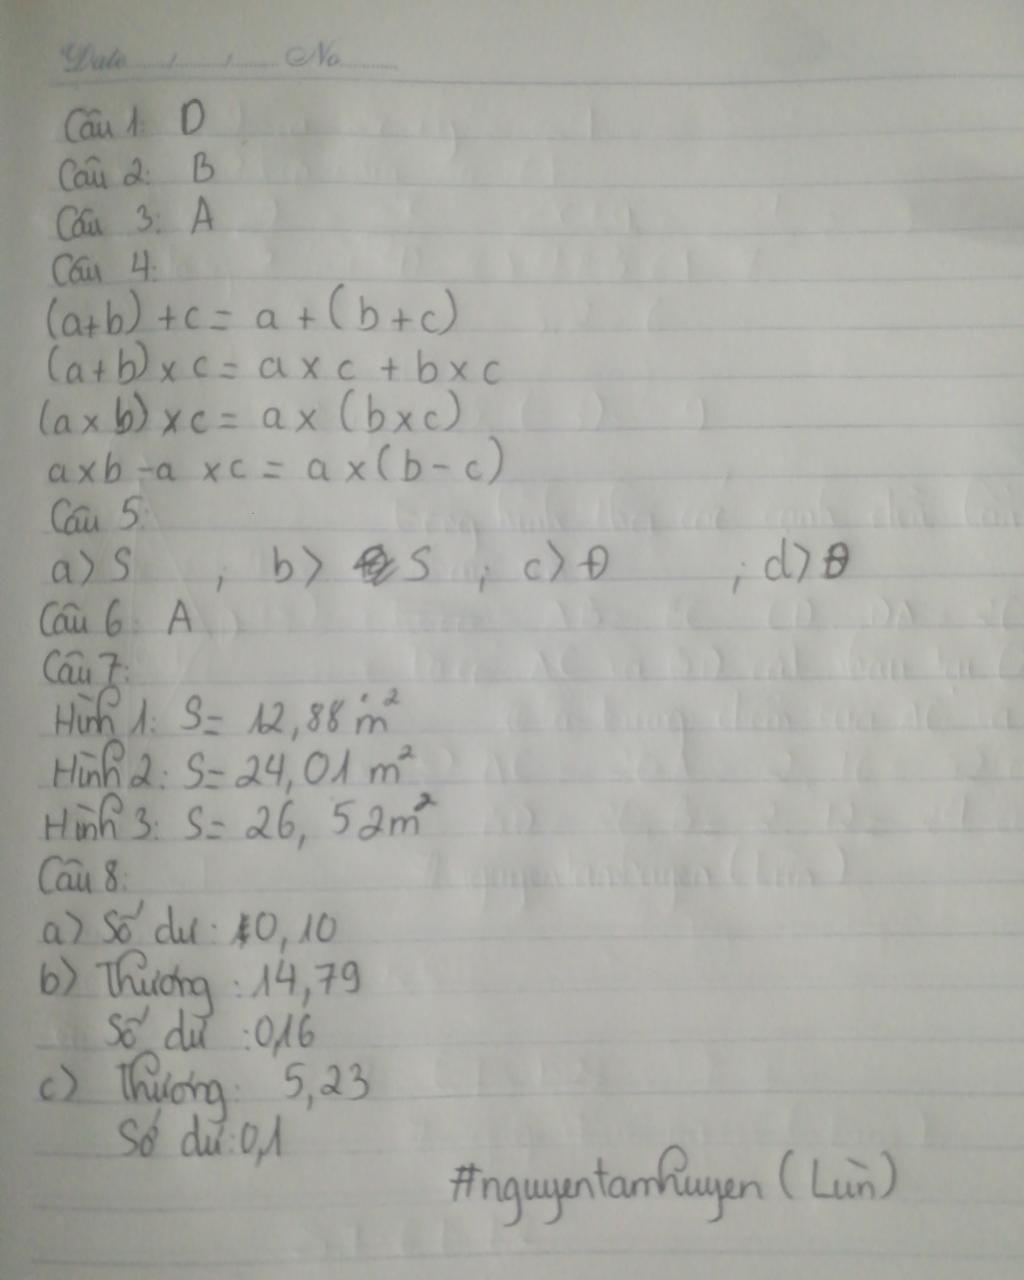 Date / / No
Câu 1: D
Câu 2: B
Câu 3: A
Câu 4:
(a+b) + c = a + (b+c)
(a+b) x c = a x c + b x c
(a x b) x c = a x (b x c)
a x b - a x c = a x (b - c)
Câu 5:
a> S ; b> S ; c> Đ ; d> Đ
Câu 6: A
Câu 7:
Hình 1: S = 12,88 m²
Hình 2: S = 24,01 m²
Hình 3: S = 26, 52m²
Câu 8:
a) Số dư: 0,10
b) Thương: 14,79
Số dư: 0,16
c) Thương: 5,23
Số dư: 0,1
#nguyentamhuyen (Lùn)